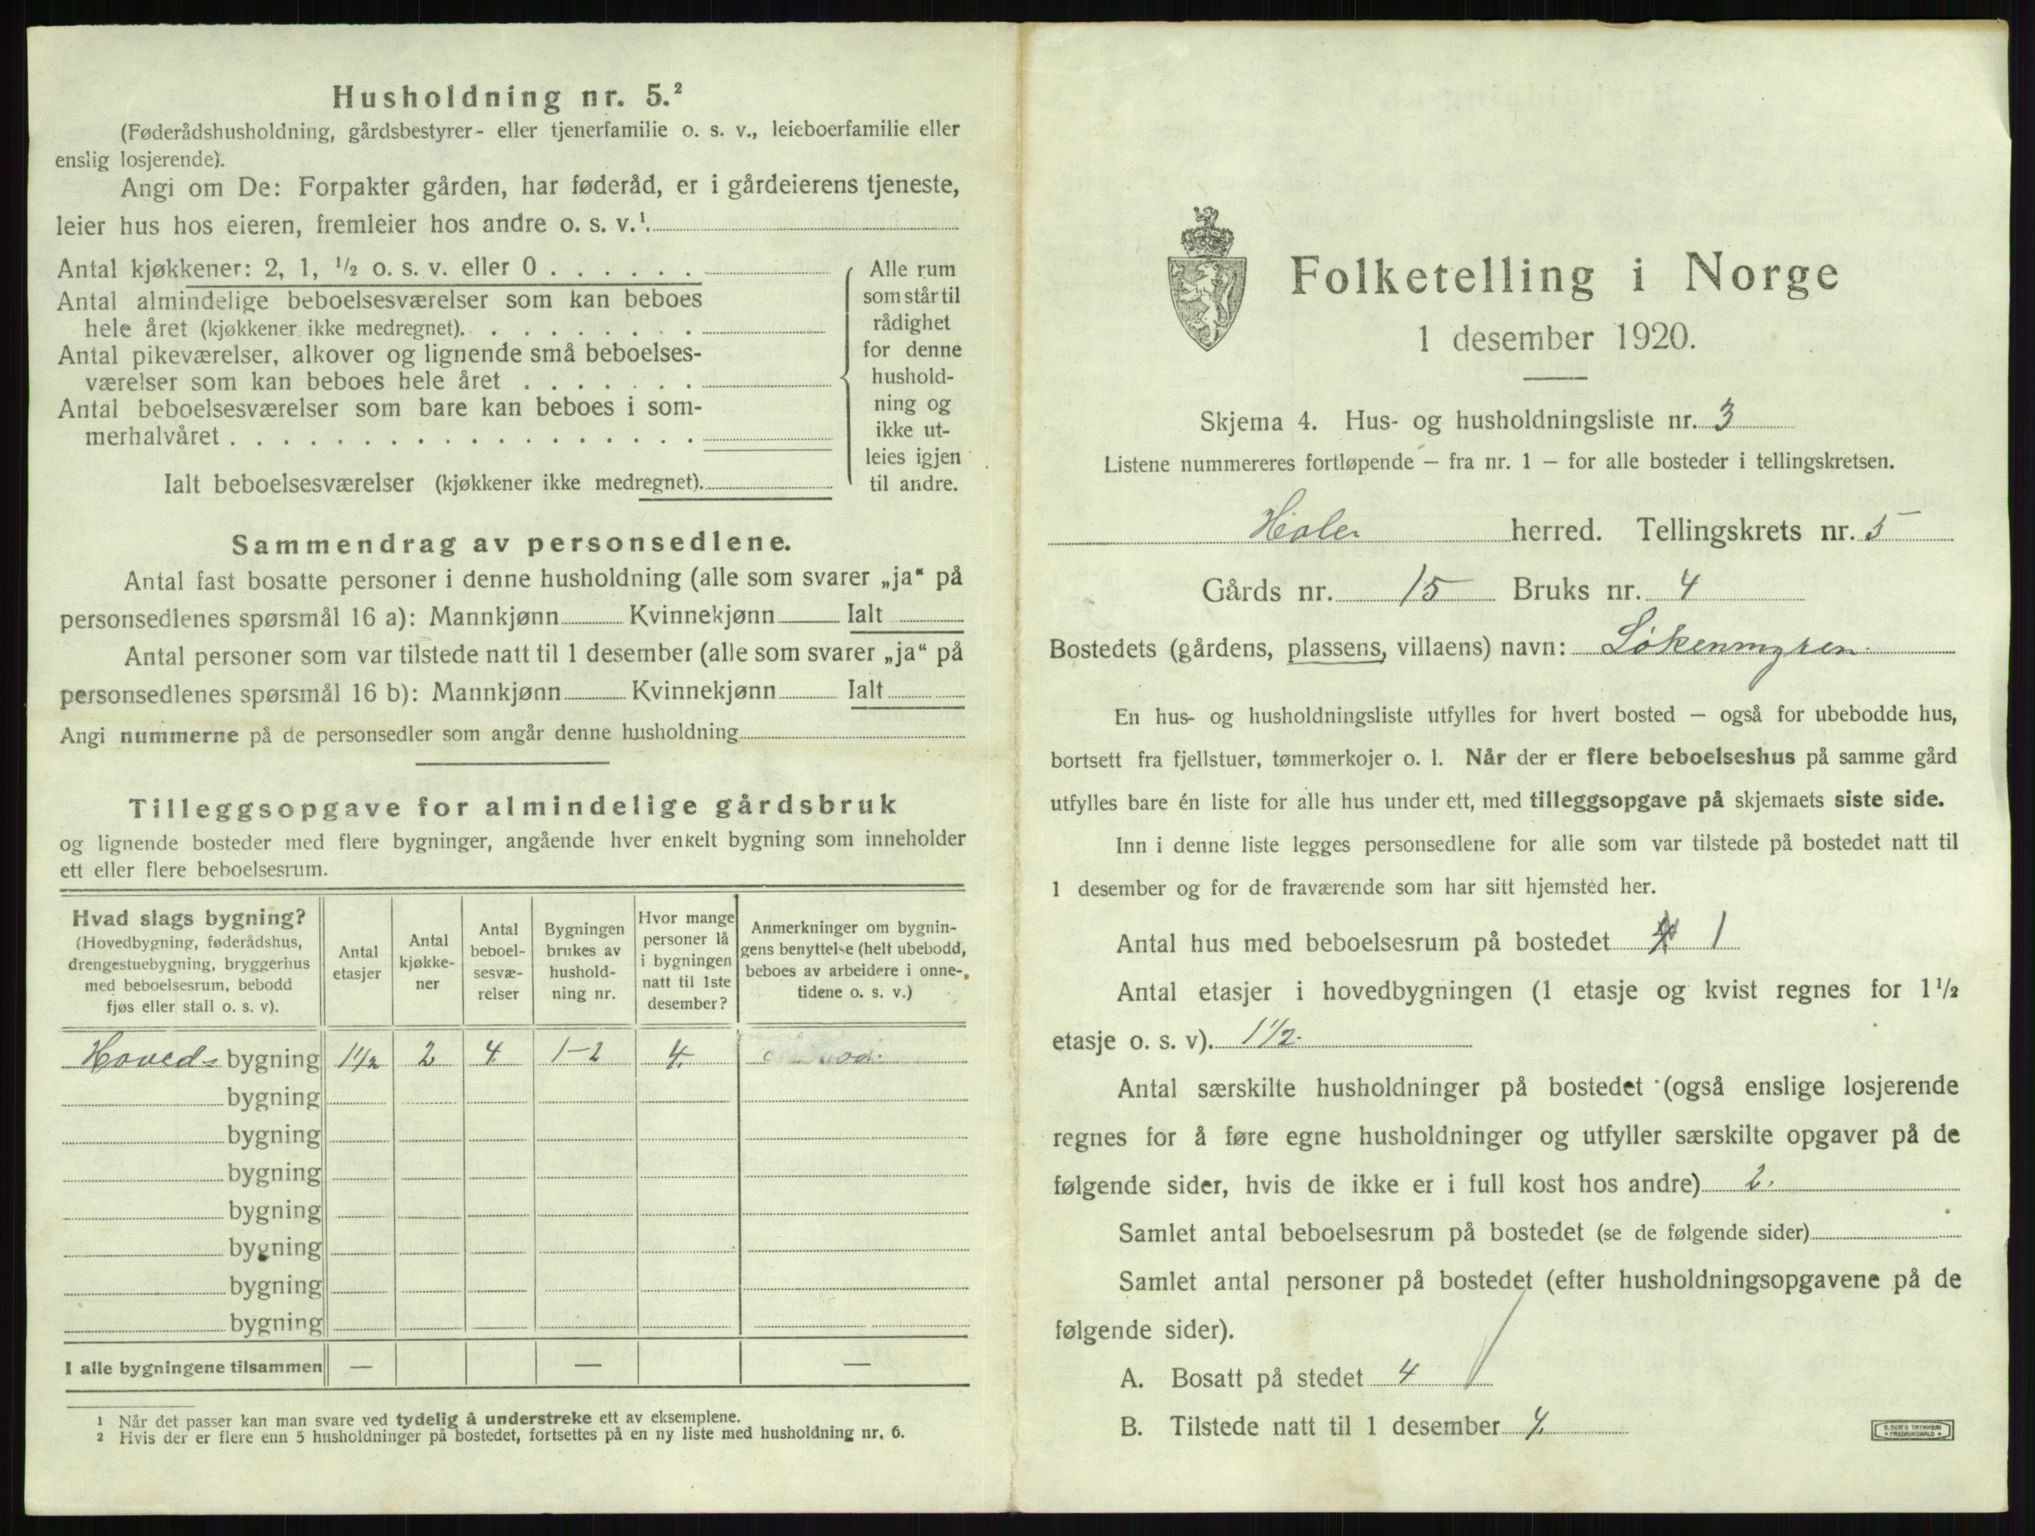 Husholdning nr. 5.²
(Føderådshusholdning, gårdsbestyrer- eller tjenerfamilie o. s. v., leieboerfamilie eller
enslig losjerende).
Angi om De: Forpakter gården, har føderåd, er i gårdeierens tjeneste,
leier hus hos eieren, fremleier hos andre o. s. v.¹.
Antal kjøkkener: 2, 1, ½ o. s. v. eller 0 . . . . . .
Antal almindelige beboelsesværelser som kan beboes
hele året (kjøkkener ikke medregnet). . . . . . . . .
Antal pikeværelser, alkover og lignende små beboelses-
værelser som kan beboes hele året . . . . . . .
Antal beboelsesværelser som bare kan beboes i som-
merhalvåret . . . . . . . . . . . . . . . . . .
Ialt beboelsesværelser (kjøkkener ikke medregnet).
Alle rum
som står til
rådighet
for denne
hushold-
ning og
ikke ut-
leies igjen
til andre.
Sammendrag av personsedlene.
Antal fast bosatte personer i denne husholdning (alle som svarer „ja“ på
personsedlenes spørsmål 16 a): Mannkjønn Kvinnekjønn Ialt
Antal personer som var tilstede natt til 1 desember (alle som svarer „ja“ på
personsedlenes spørsmål 16 b): Mannkjønn Kvinnekjønn Ialt
Angi nummerne på de personsedler som angår denne husholdning
Tilleggsopgave for almindelige gårdsbruk
og lignende bosteder med flere bygninger, angående hver enkelt bygning som inneholder
ett eller flere beboelsesrum.
Hvad slags bygning?
(Hovedbygning, føderådshus,
drengestuebygning, bryggerhus
med beboelsesrum, bebodd
fjøs eller stall o. s. v).
Antal
etasjer
Antal
kjøkke-
ner
Antal
beboel-
sesvæ-
relser
Bygningen
brukes av
hushold-
ning nr.
Hvor mange
personer lå
i bygningen
natt til 1ste
desember?
Anmerkninger om bygnin-
gens benyttelse (helt ubebodd,
beboes av arbeidere i onne-
tidene o. s. v.)
Hoveds bygning 1½ 2 4 1-2 4.
bygning
bygning
bygning
bygning
bygning
bygning
bygning
I alle bygningene tilsammen — — —
¹ Når det passer kan man svare ved tydelig å understreke ett av eksemplene.
² Hvis der er flere enn 5 husholdninger på bostedet, fortsettes på en ny liste med husholdning nr. 6.
Folketelling i Norge
1 desember 1920.
Skjema 4. Hus- og husholdningsliste nr. 3
Listene nummereres fortløpende – fra nr. 1 – for alle bosteder i tellingskretsen.
Høler herred. Tellingskrets nr. 5
Gårds nr. 15 Bruks nr. 4
Bostedets (gårdens, plassens, villaens) navn: Løkenmyren.
En hus- og husholdningsliste utfylles for hvert bosted – også for ubebodde hus,
bortsett fra fjellstuer, tømmerkojer o. l. Når der er flere beboelseshus på samme gård
utfylles bare én liste for alle hus under ett, med tilleggsopgave på skjemaets siste side.
Inn i denne liste legges personsedlene for alle som var tilstede på bostedet natt til
1 desember og for de fraværende som har sitt hjemsted her.
Antal hus med beboelsesrum på bostedet 1
Antal etasjer i hovedbygningen (1 etasje og kvist regnes for 1½
etasje o. s. v). 1½.
Antal særskilte husholdninger på bostedet (også enslige losjerende
regnes for å føre egne husholdninger og utfyller særskilte opgaver på de
følgende sider, hvis de ikke er i full kost hos andre) 2.
Samlet antal beboelsesrum på bostedet (se de følgende sider)
Samlet antal personer på bostedet (efter husholdningsopgavene på de
følgende sider).
A. Bosatt på stedet 4
B. Tilstede natt til 1 desember 4.